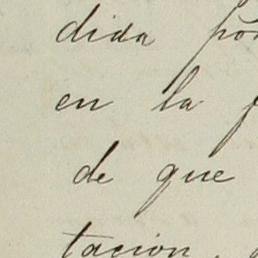 dida por
en la
de que
tacion,